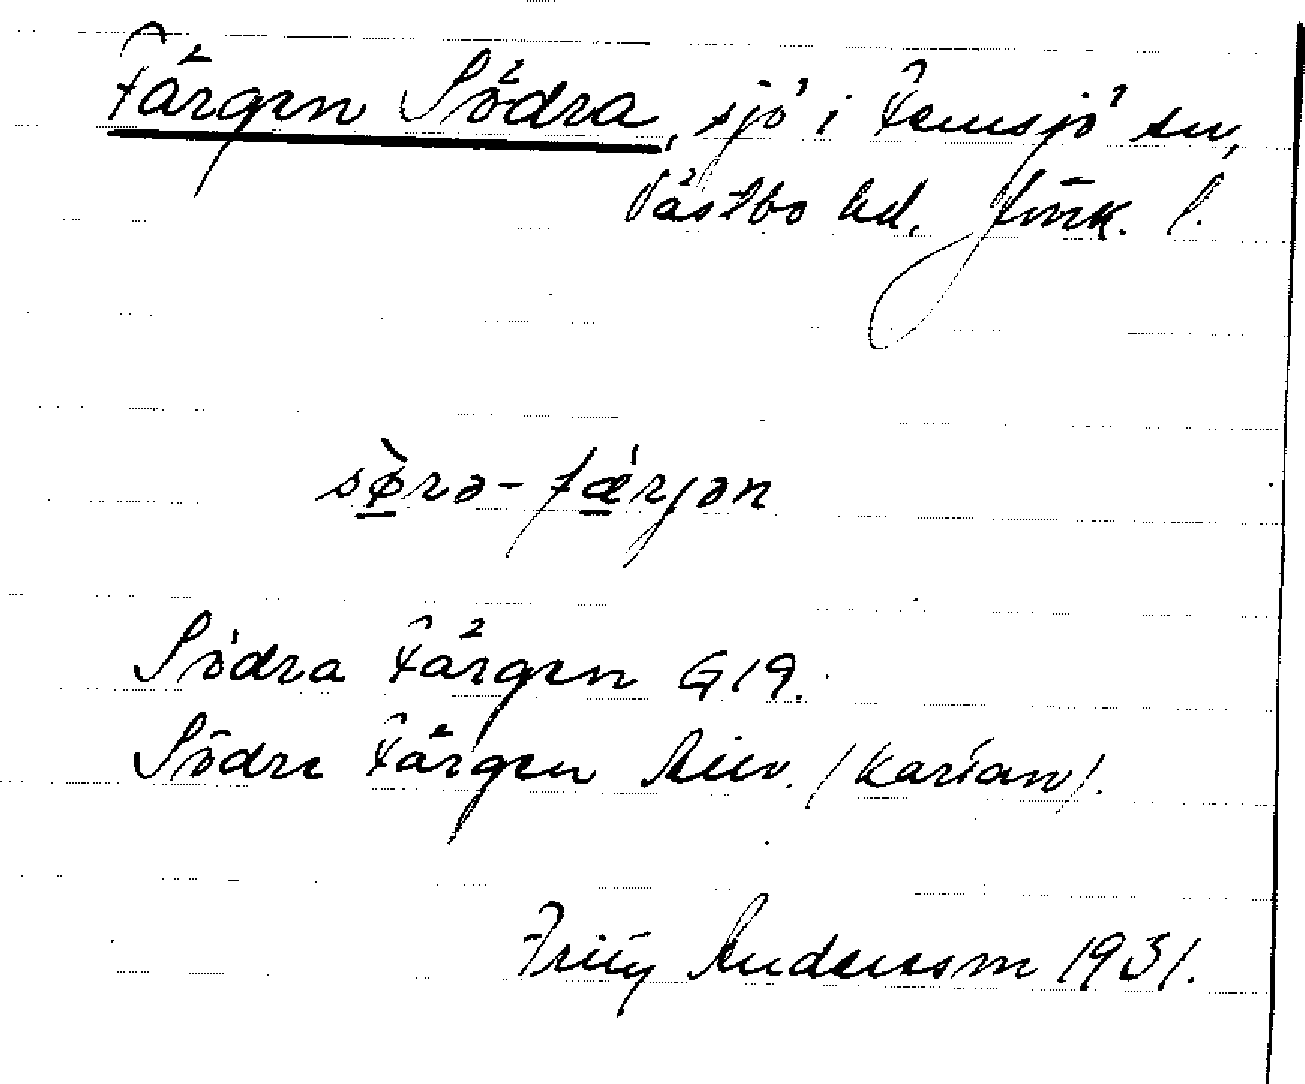 Färgen Södra, sjö i Femsjö sn,
Västbo hd. Jönk. l.
sø̀rə-fǽrjən
Södra Färgen G19.
Södra Färgen (Kartan).
Andersson 1931.